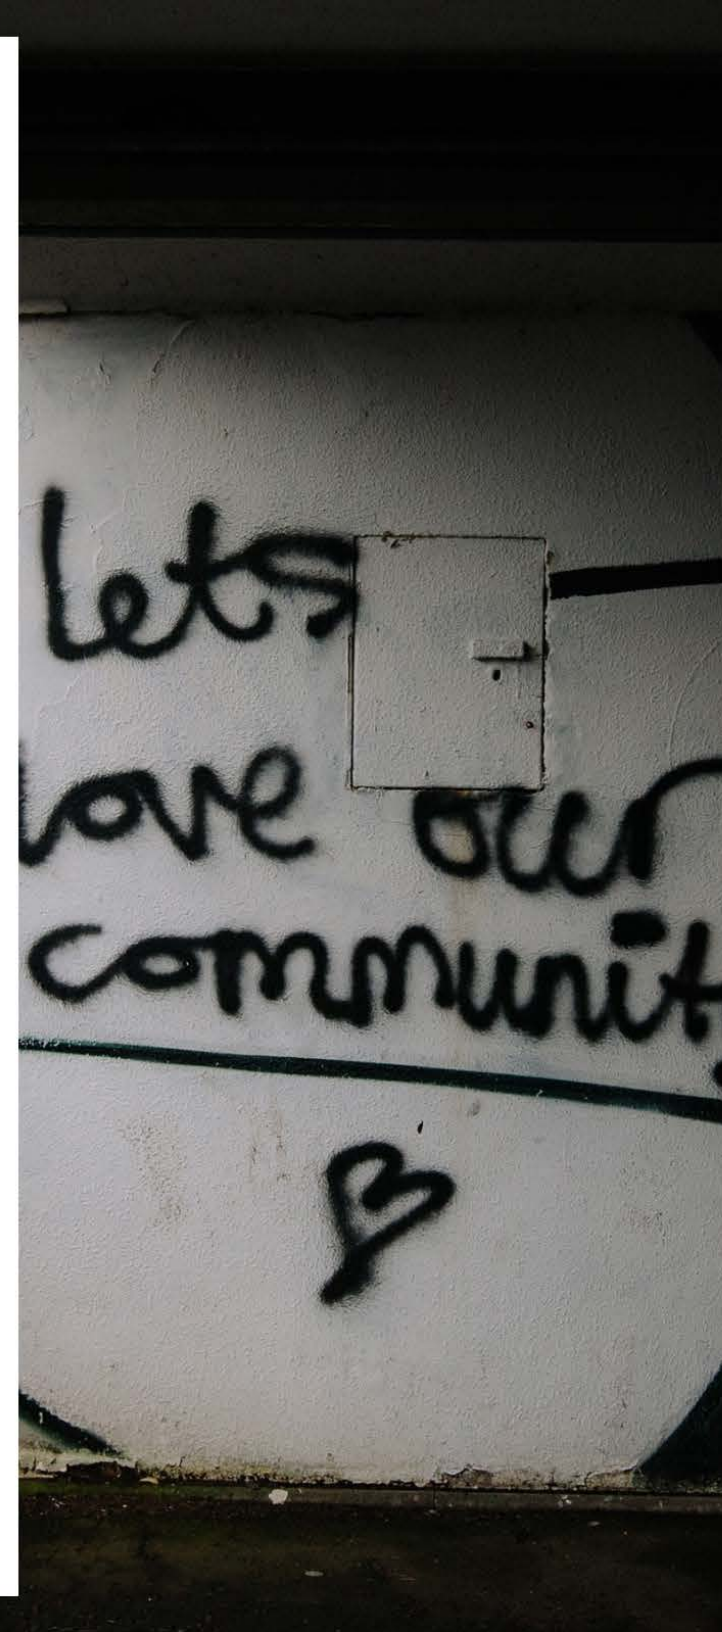 lets
love our
communit